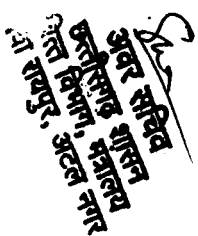 अवर सचिव
छत्तीसगढ़ शासन
विभाग, मंत्रालय
रायपुर, अटल नगर